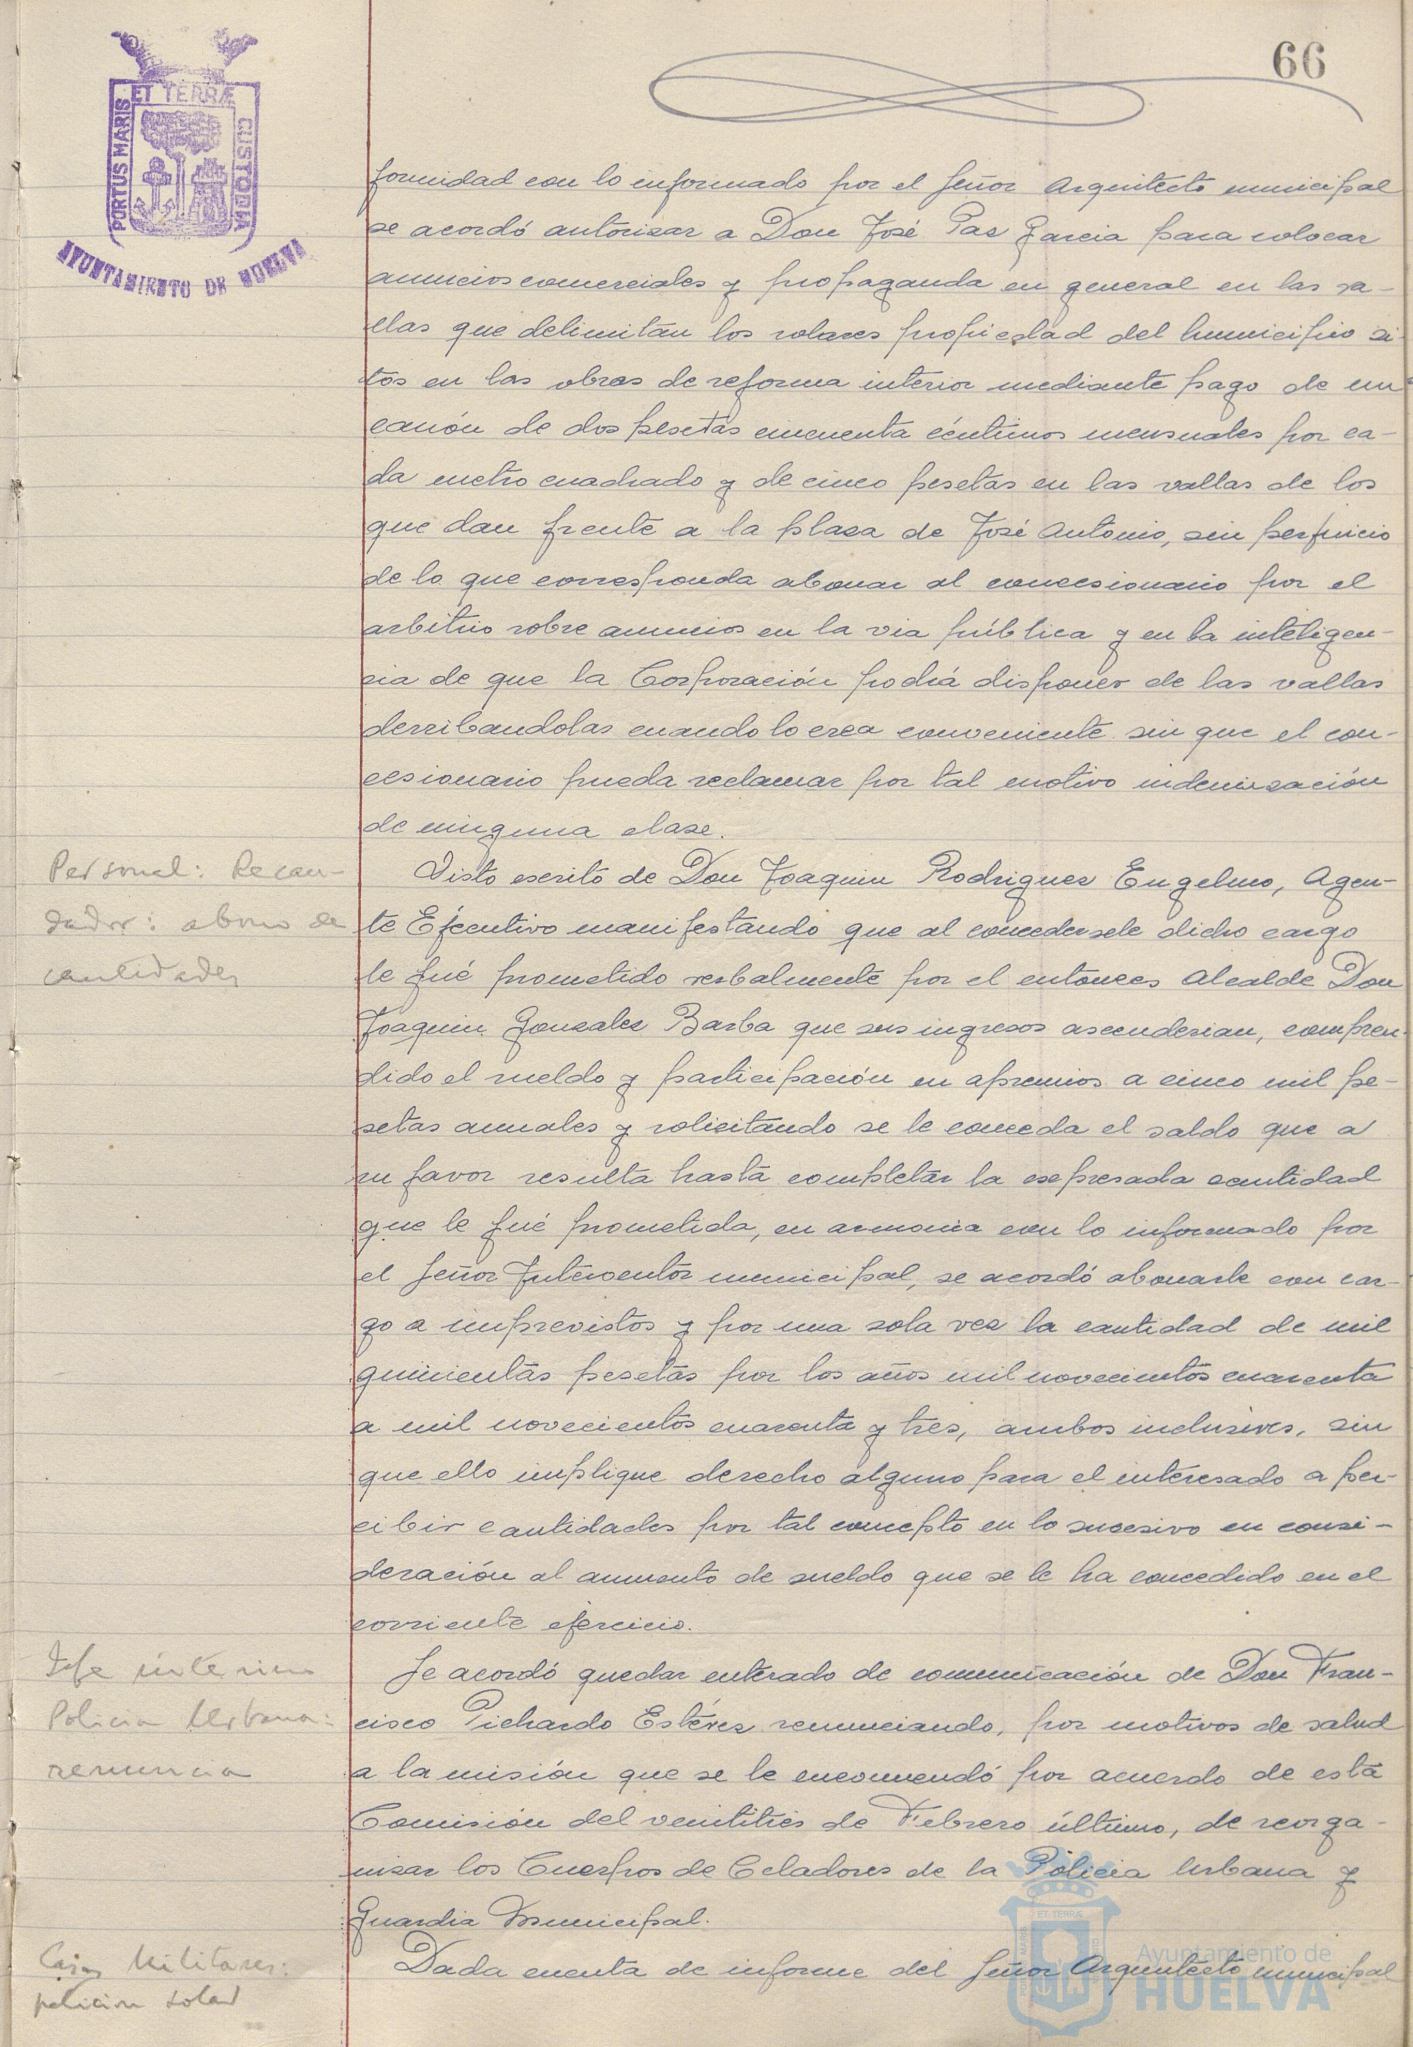 66
PORTUS MARIS ET TERRÆ CUSTODIA
AYUNTAMIENTO DE HUELVA
formidad con lo informado por el Señor Arquitecto municipal
se acordó autorizar a Don José Paz Garcia para colocar
anuncios comerciales y propaganda en general en las va-
llas que delimitan los solares propiedad del Municipio si-
tos en las obras de reforma interior mediante pago de un
canón de dos pesetas cincuenta céntimos mensuales por ca-
da metro cuadrado y de cinco pesetas en las vallas de los
que dan frente a la plaza de José Antonio, sin perjuicio
de lo que corresponda abonar al concesionario por el
arbitrio sobre anuncios en la via pública y en la inteligen-
cia de que la Corporación podrá disponer de las vallas
derribandolas cuando lo crea conveniente sin que el con-
cesionario pueda reclamar por tal motivo indemnización
de ninguna clase.
Personal: Recau-
dador: abono de
cantidades
Visto escrito de Don Joaquin Rodriguez Engelmo, Agen-
te Ejecutivo manifestando que al concedersele dicho cargo
le fué prometido verbalmente por el entonces Alcalde Don
Joaquin Gonzalez Barba que sus ingresos ascenderian, compren-
dido el sueldo y participación en apremios a cinco mil pe-
setas anuales y solicitando se le conceda el saldo que a
su favor resulta hasta completar la expresada cantidad
que le fué prometida, en armonia con lo informado por
el Señor Interventor municipal, se acordó abonarle con car-
go a imprevistos y por una sola vez la cantidad de mil
quinientas pesetas por los años mil novecientos cuarenta
a mil novecientos cuarenta y tres, ambos inclusives, sin
que ello implique derecho alguno para el interesado a per-
cibir cantidades por tal concepto en lo sucesivo en consi-
deración al aumento de sueldo que se le ha concedido en el
corriente ejercicio.
Jefe interino
Policia Urbana:
renuncia
Se acordó quedar enterado de comunicación de Don Fran-
cisco Pichardo Estévez renunciando, por motivos de salud
a la misión que se le encomendó por acuerdo de esta
Comisión del veintitres de Febrero último, de reorga-
nizar los Cuerpos de Celadores de la Policia Urbana y
Guardia Municipal.
Casas Militares:
peticion solar
Dada cuenta de informe del Señor Arquitecto municipal
Ayuntamiento de
HUELVA